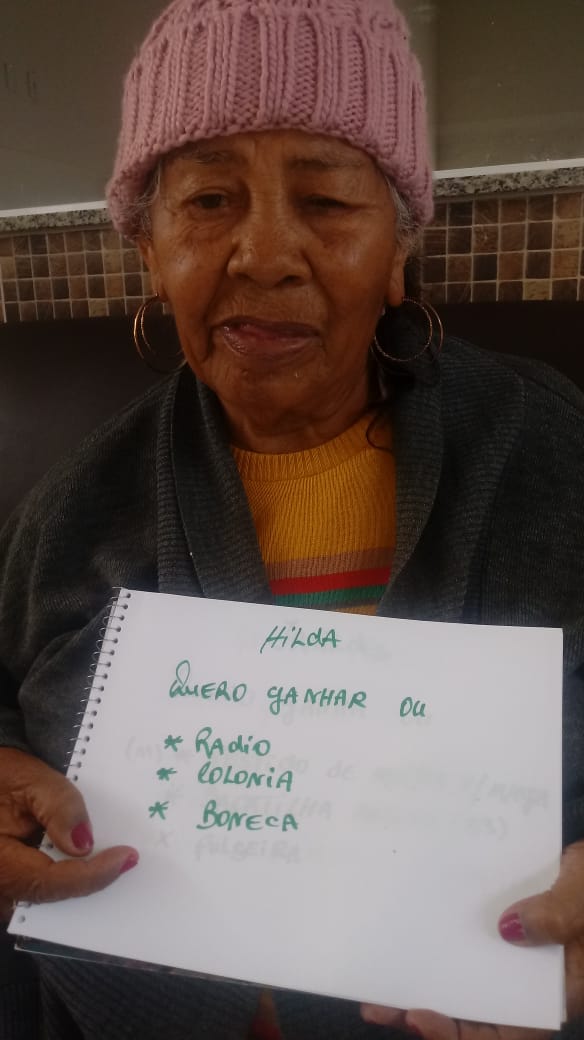 HiLdA
QUERO GANHAR OU
* RAdiO
* COLONiA
* BONECA